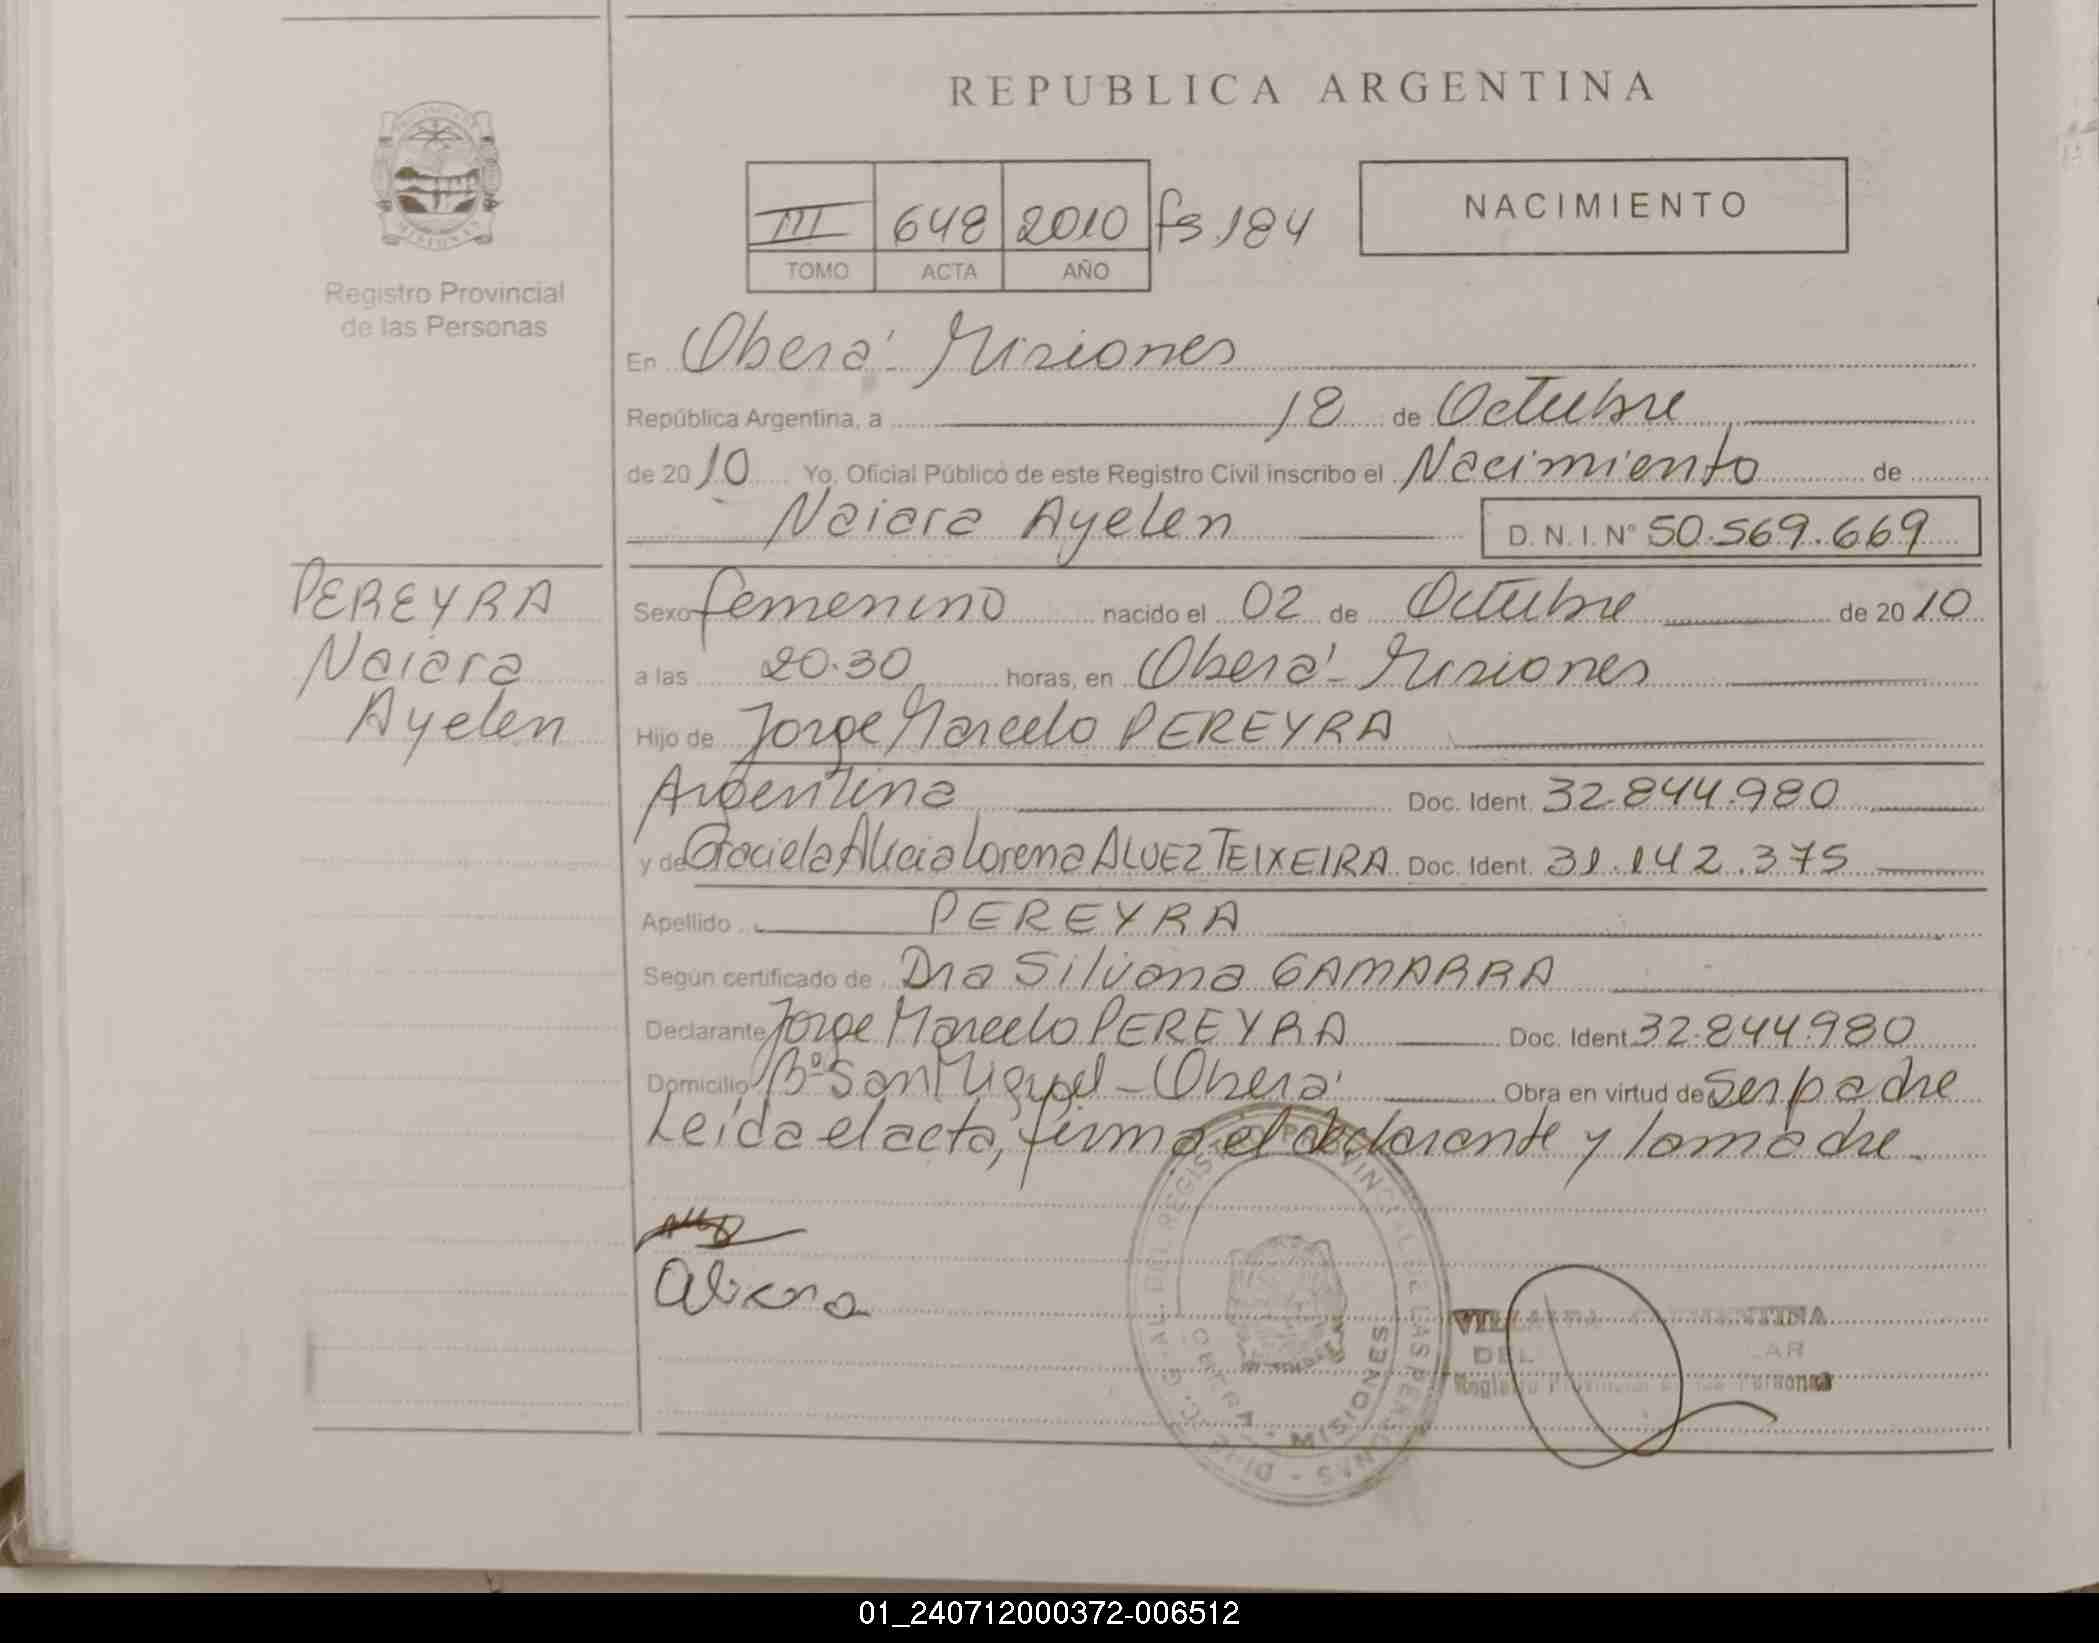 REPUBLICA ARGENTINA
MISIONES
Registro Provincial
de las Personas
III 648 2010 fs 184
TOMO ACTA AÑO
NACIMIENTO
En Oberá - Misiones
República Argentina, a 18 de Octubre
de 2010 Yo, Oficial Público de este Registro Civil inscribo el Nacimiento de
Naiara Ayelen D. N. I. Nº 50.569.669
PEREYRA
Naiara
Ayelen
Sexo femenino nacido el 02 de Octubre de 2010
a las 20.30 horas, en Oberá - Misiones
Hijo de Jorge Marcelo PEREYRA
Argentina Doc. Ident. 32.844.980
y de Graciela Alicia Lorena ALVEZ TEIXEIRA Doc. Ident. 31.142.375
Apellido PEREYRA
Según certificado de Dra Silvana GAMARRA
Declarante Jorge Marcelo PEREYRA Doc. Ident. 32.844.980
Domicilio Bº San Miguel - Oberá Obra en virtud de ser padre
Leída el acta, firma el declarante y la madre.
REGISTRO PROVINCIAL DE LAS PERSONAS
OBERA - MISIONES
DEL
Registro Provincial de las Personas
01_240712000372-006512